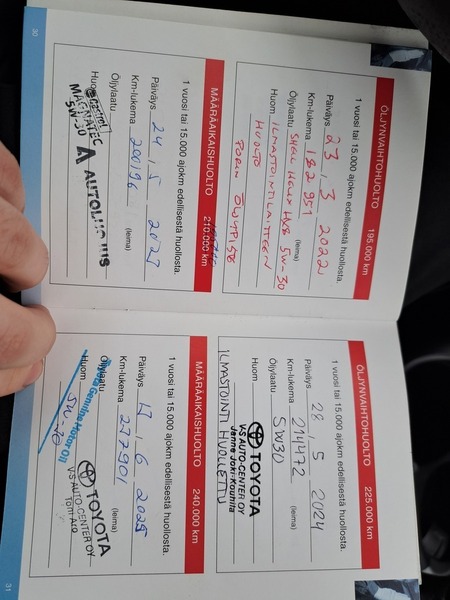 30
ÖLJYNVAIHTOHUOLTO 195.000 km
1 vuosi tai 15.000 ajokm edellisestä huollosta.
Päiväys 23 . 3 2022
Km-lukema 182951 (leima)
Öljylaatu SHELL HELIX HX8 5W-30
Huom ILMASTOINTILAITTEEN
HUOLTO
PORIN ÖLJYPISTE
MÄÄRÄAIKAISHUOLTO 210.000 km
1 vuosi tai 15.000 ajokm edellisestä huollosta.
Päiväys 24 . 5 2023
Km-lukema 200196 (leima)
Öljylaatu
Castrol
MAGNATEC
5W-30
Huom
ÖLJYNVAIHTOHUOLTO 225.000 km
1 vuosi tai 15.000 ajokm edellisestä huollosta.
Päiväys 28 . 5 2024
Km-lukema 214472 (leima)
Öljylaatu 5W30
TOYOTA
V-S AUTO-CENTER OY
Janne Joki-Kouhila
Huom
ILMASTOINTI HUOLLETTU
MÄÄRÄAIKAISHUOLTO 240.000 km
1 vuosi tai 15.000 ajokm edellisestä huollosta.
Päiväys 6 2025
Km-lukema 227901 (leima)
Öljylaatu
Toyota Genuine Motor Oil
TOYOTA
V-S AUTO-CENTER OY
Huom
31